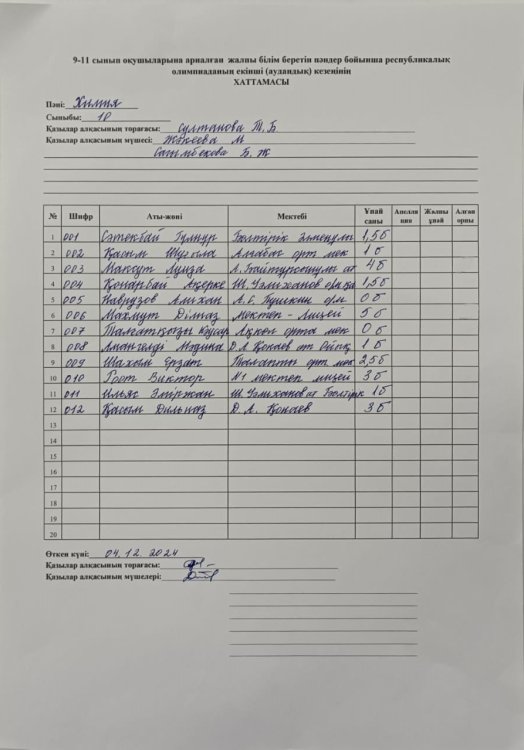 9-11 сынып оқушыларына арналған жалпы білім беретін пәндер бойынша республикалық
олимпиаданың екінші (аудандық) кезеңінің
ХАТТАМАСЫ
Пәні: Химия
Сыныбы: 10
Қазылар алқасының төрағасы: Султанова Т.Б
Қазылар алқасының мүшесі: Жәкеева М
Сағымбекова Б. Ж
№ Шифр Аты-жөні Мектебі Ұпай саны Апелляция Жалпы ұпай Алған орны
1 001 Сәтекбай Гулнур Бәлтірік 1,5б
2 002 Қасым Шұғыла орт мек 1б
3 003 Мақсұт Луиза А.Байтұрсынұлы ат 4б
4 004 Қонарбай Ақерке Ш.Уәлиханов 1,5б
5 005 Наврузов Алихан А.С. Пушкин 0б
6 006 Махмут Ділназ Мектеп-лицей 5б
7 007 Талғатқызы орта мек 0б
8 008 Амангелді Мәдина Д.А. Қонаев ат 1б
9 009 Шахым Ерзат Талапты орт мек 2,5б
10 010 Роот Виктор №1 мектеп лицей 3б
11 011 Ильяс Элиржан Ш.Уәлиханов ат 1б
12 012 Қасым Дильназ Д.А. Қонаев 3б
13
14
15
16
17
18
19
20
Өткен күні: 04.12.2024
Қазылар алқасының төрағасы:
Қазылар алқасының мүшелері: